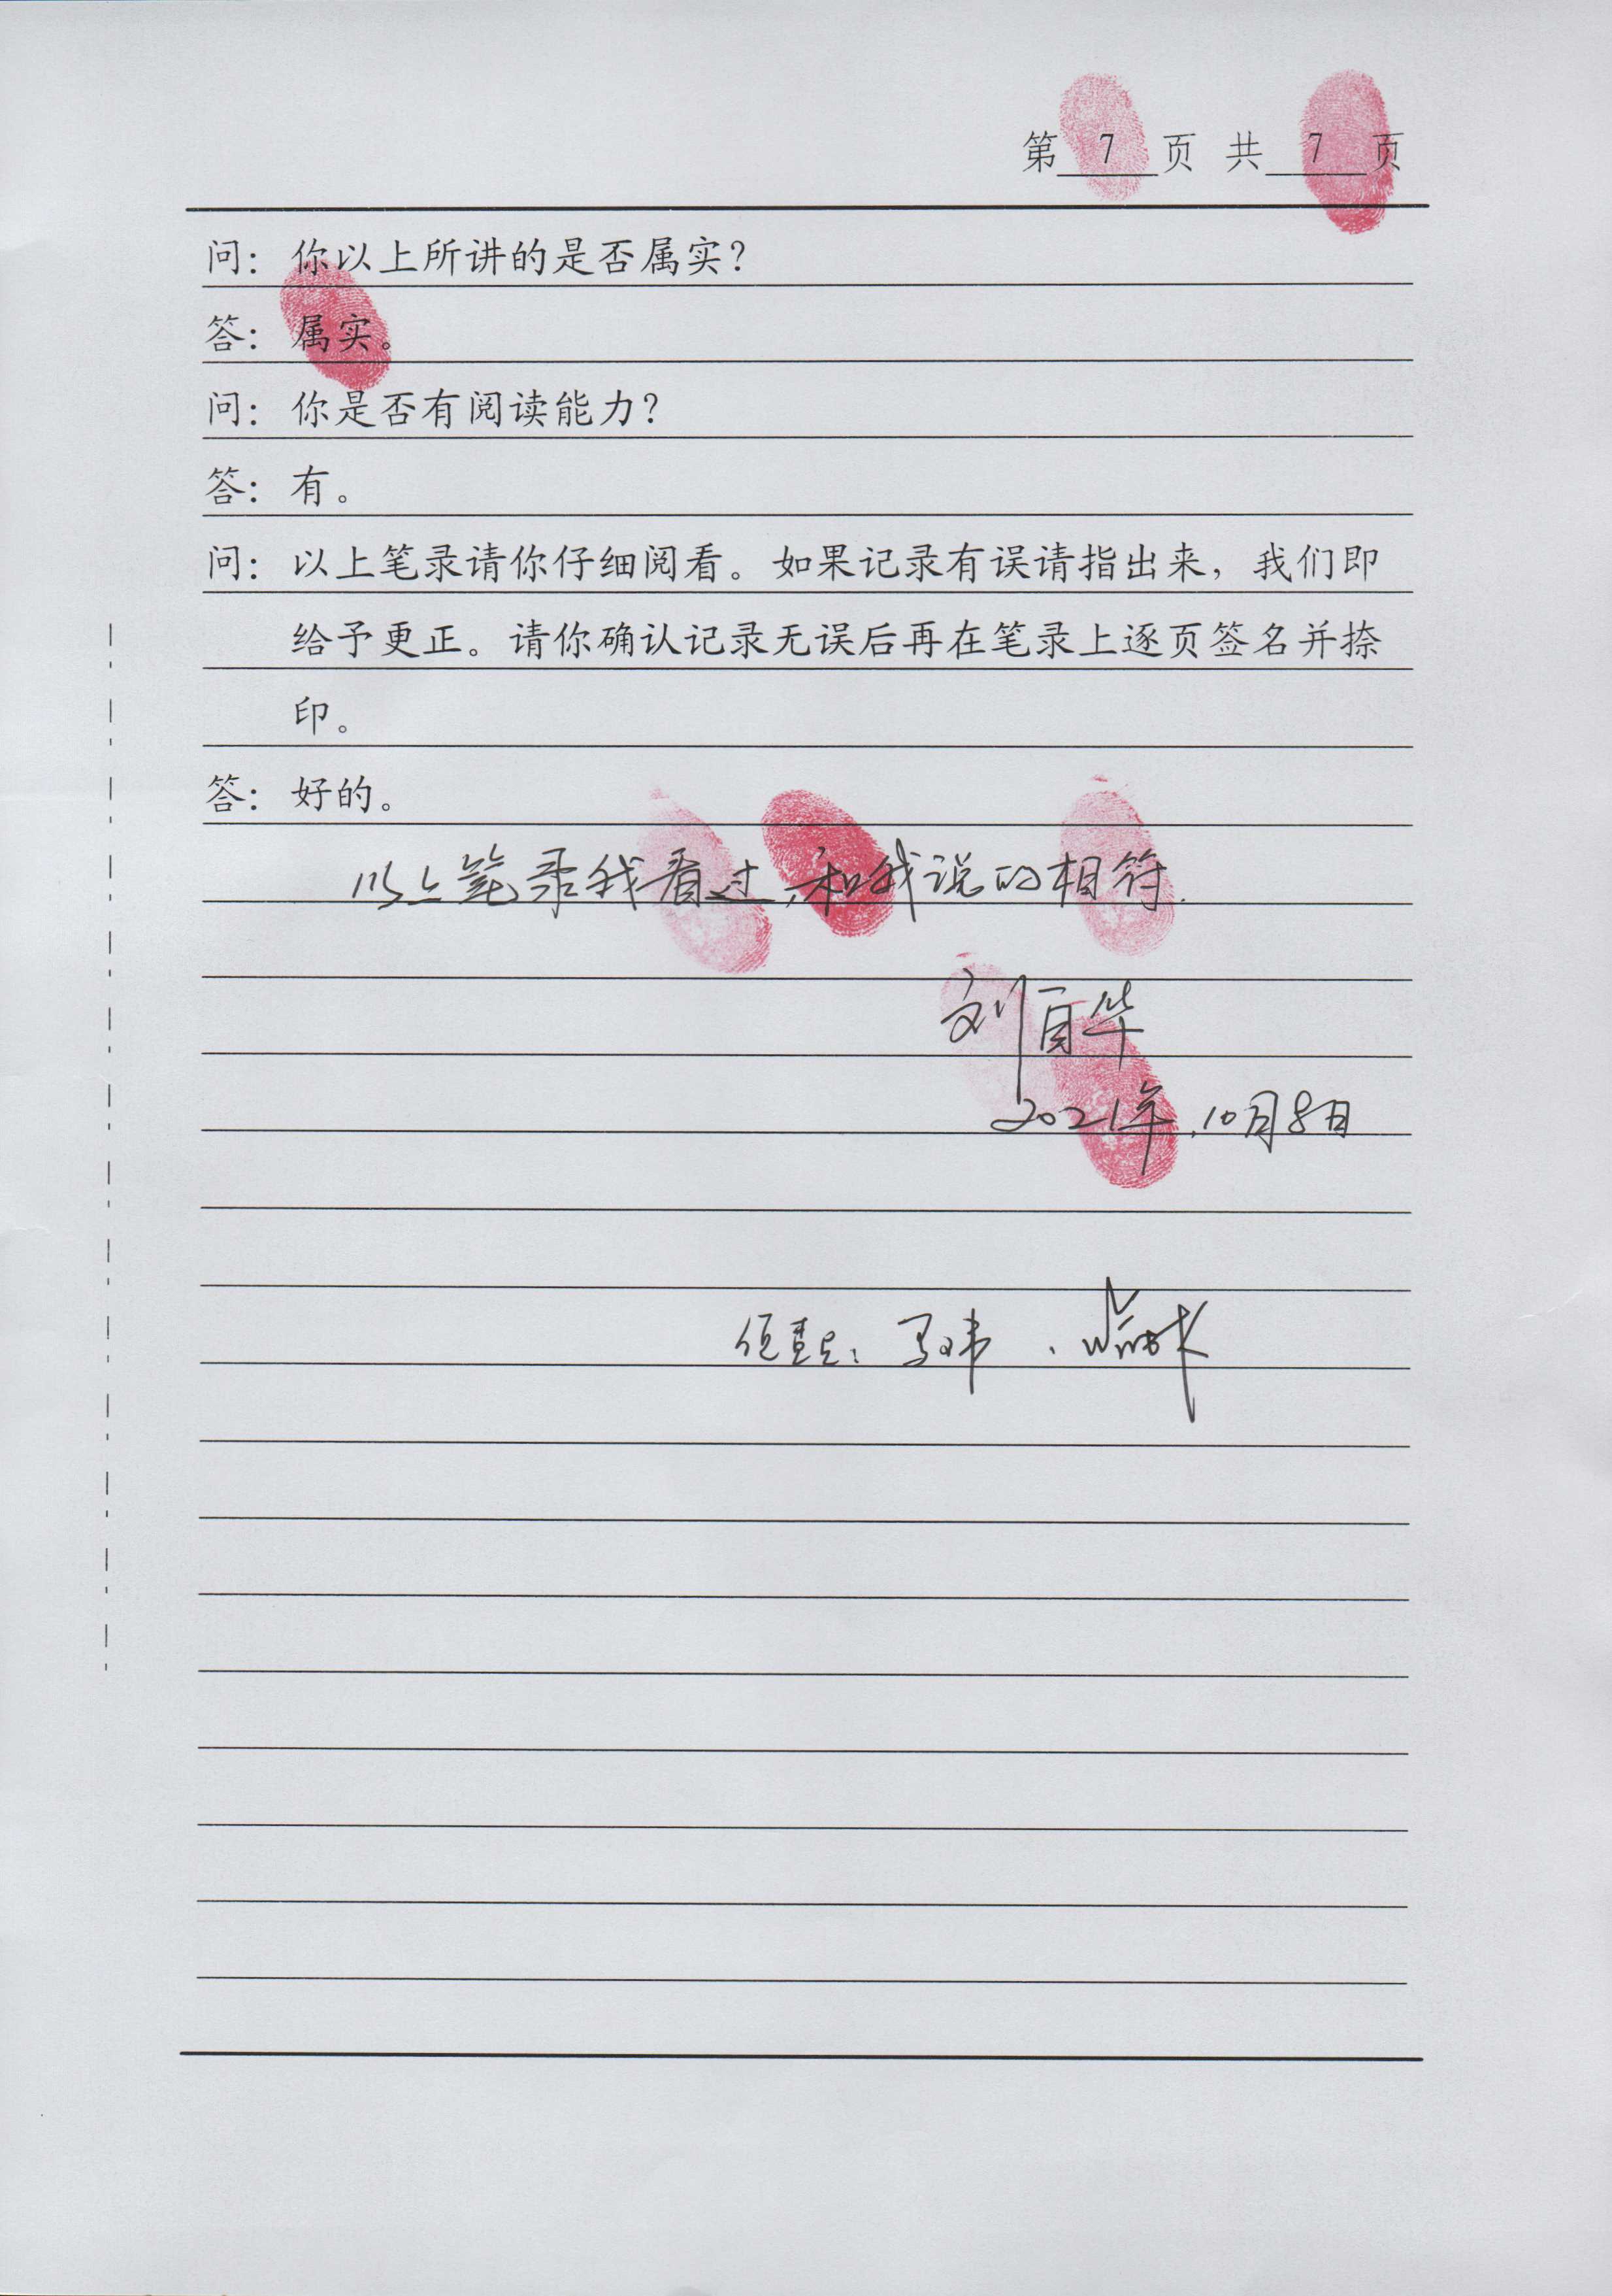 第 7 页 共 7 页
问：你以上所讲的是否属实？
答：属实。
问：你是否有阅读能力？
答：有。
问：以上笔录请你仔细阅看。如果记录有误请指出来，我们即
给予更正。请你确认记录无误后再在笔录上逐页签名并捺
印。
答：好的。
以上笔录我看过，和我说的相符.
刘百华
2021年.10月8日
侦查员：马玮 、